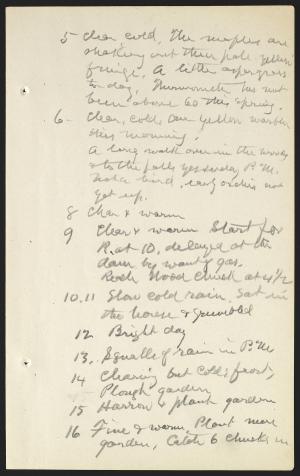 5 Clear cold. The maples are
shaking out their pale yellow
fringe. A little asparagras
to-day, Thermometer has not
been above 60 this spring.
6- Clear, cold, one yellow warbler
this morning.
A long walk over in the woods
& to the falls yesterday P.M.
Not a bird, early orchis not
yet up.
8 Clear & warm
9 Clear & warm Start for
R. at 10, delayed at the
dam by want of gas.
Reach Wood chuck at 4 1/2
10.11 Slow cold rain. Sat in
the house & grumbled
12 Bright day
13. Squalls of rain in P.M.
14 Clearing but cold; frost,
Plough garden
15 Harrow & plant garden
16 Fine & warm, Plant more
garden, Catch 6 chucks in